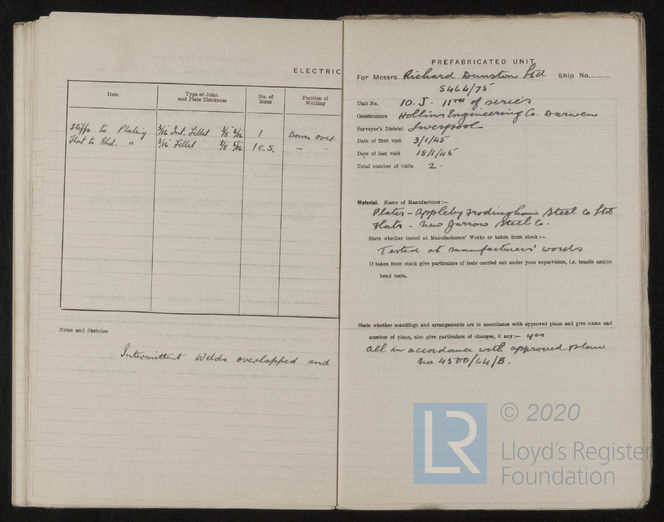 ELECTRIC
Item Type of Joint and Plate Thickness No. of Runs Position of Welding
Stiffs to Plating 3/16 Int. Fillet 1 Down Over
Flat to Bhd. " 3/16 Fillet 1 e.s. " "
Notes and Sketches
Intermittent Welds overlapped and
PREFABRICATED UNIT
For Messrs. Richard Dunston Ltd Ship No.
S464/75
Unit No. 10.J. 11TH of series
Constructors Hollins Engineering Co. Darwen
Surveyor's District Liverpool
Date of first visit 3/1/45
Date of last visit 18/1/45
Total number of visits 2.
Material. Name of Manufacturer :—
Plates - Appleby Frodingham Steel Co Ltd
Flats - New Jarrow Steel Co.
State whether tested at Manufacturers' Works or taken from stock :—
Tested at manufacturers' works
If taken from stock give particulars of tests carried out under your supervision, i.e. tensile and/or
bend tests.
State whether scantlings and arrangements are in accordance with approved plans and give name and
number of plans, also give particulars of changes, if any :— yes
All in accordance with approved plan
No 4500/64/B.
© 2020
LR Lloyd's Register
Foundation